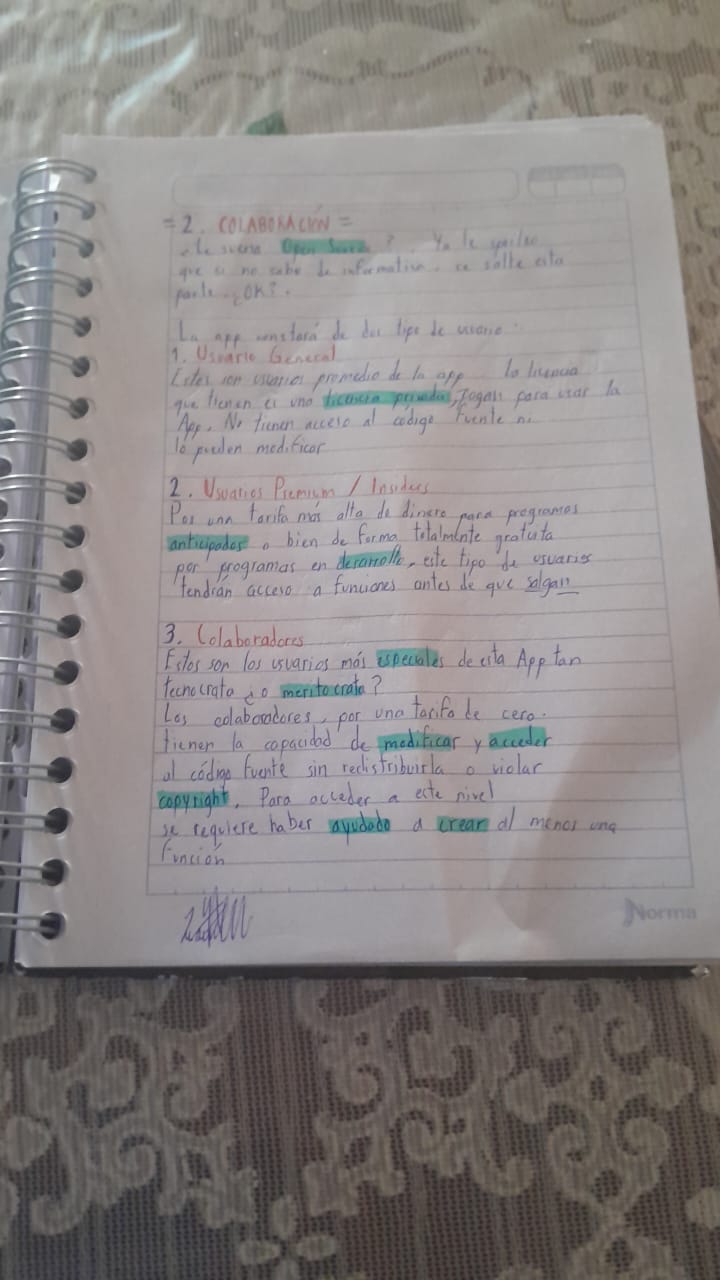 = 2. COLABORACIÓN =
Le suena Open Source?. Yo le spoileo
que si no sabe de informática, se salte esta
parte. ¿OK?.
La app constará de dos tipo de usuario.
1. Usuario General
Estos son usuarios promedio de la app la licencia
que tienen es una licencia privada, pagan para usar la
App. No tienen acceso al código fuente ni
lo pueden modificar
2. Usuarios Premium / Insiders
Por una tarifa más alta de dinero para programas
anticipados o bien de forma totalmente gratuita
por programas en desarrollo, este tipo de usuarios
tendrán acceso a funciones antes de que salgan
3. Colaboradores
Estos son los usuarios más especiales de esta App tan
tecnocrata ¿o meritocrata?
Los colaboradores, por una tarifa de cero.
tienen la capacidad de modificar y acceder
al código fuente sin redistribuirla o violar
copyright. Para acceder a este nivel
se requiere haber ayudado a crear al menos una
función
Norma